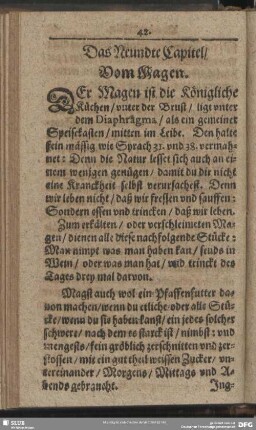 42.
Das Neundte Capitel/
Vom Magen.
DEr Magen ist die Königliche
Küchen/ vnter der Brust/ ligt vnter
dem Diaphragma/ als ein gemeiner
Speisekasten/ mitten im Leibe. Den halte
fein mässig wie Sprach 31. vnd 38. vermah-
net: Denn die Natur lesset sich auch an ei-
nem wenigen genügen/ damit du dir nicht
eine Kranckheit selbst verursachest. Denn
wir leben nicht/ daß wir fressen vnd sauffen:
Sondern essen vnd trincken/ daß wir leben.
Zum erkälten/ oder verschleimeten Ma-
gen/ dienen alle diese nachfolgende Stücke:
Man nimpt was man haben kan/ seuds in
Wein/ oder was man hat/ vnd trinckt des
Tages drey mal darvon.
Magst auch wol ein Pfaffenfutter da-
von machen/ wenn du etliche oder alle Stü-
cke/ wenn du sie haben kanst/ ein jedes solcher
schwere/ nach dem es starck ist/ nimbst: vnd
mengests/ fein gröblich zerschnitten vnd zer-
stossen/ mit ein gut theil weissen Zucker/ vn-
tereinander/ Morgens/ Mittags vnd A-
bends gebraucht.
Ing-
SLUB
DFG